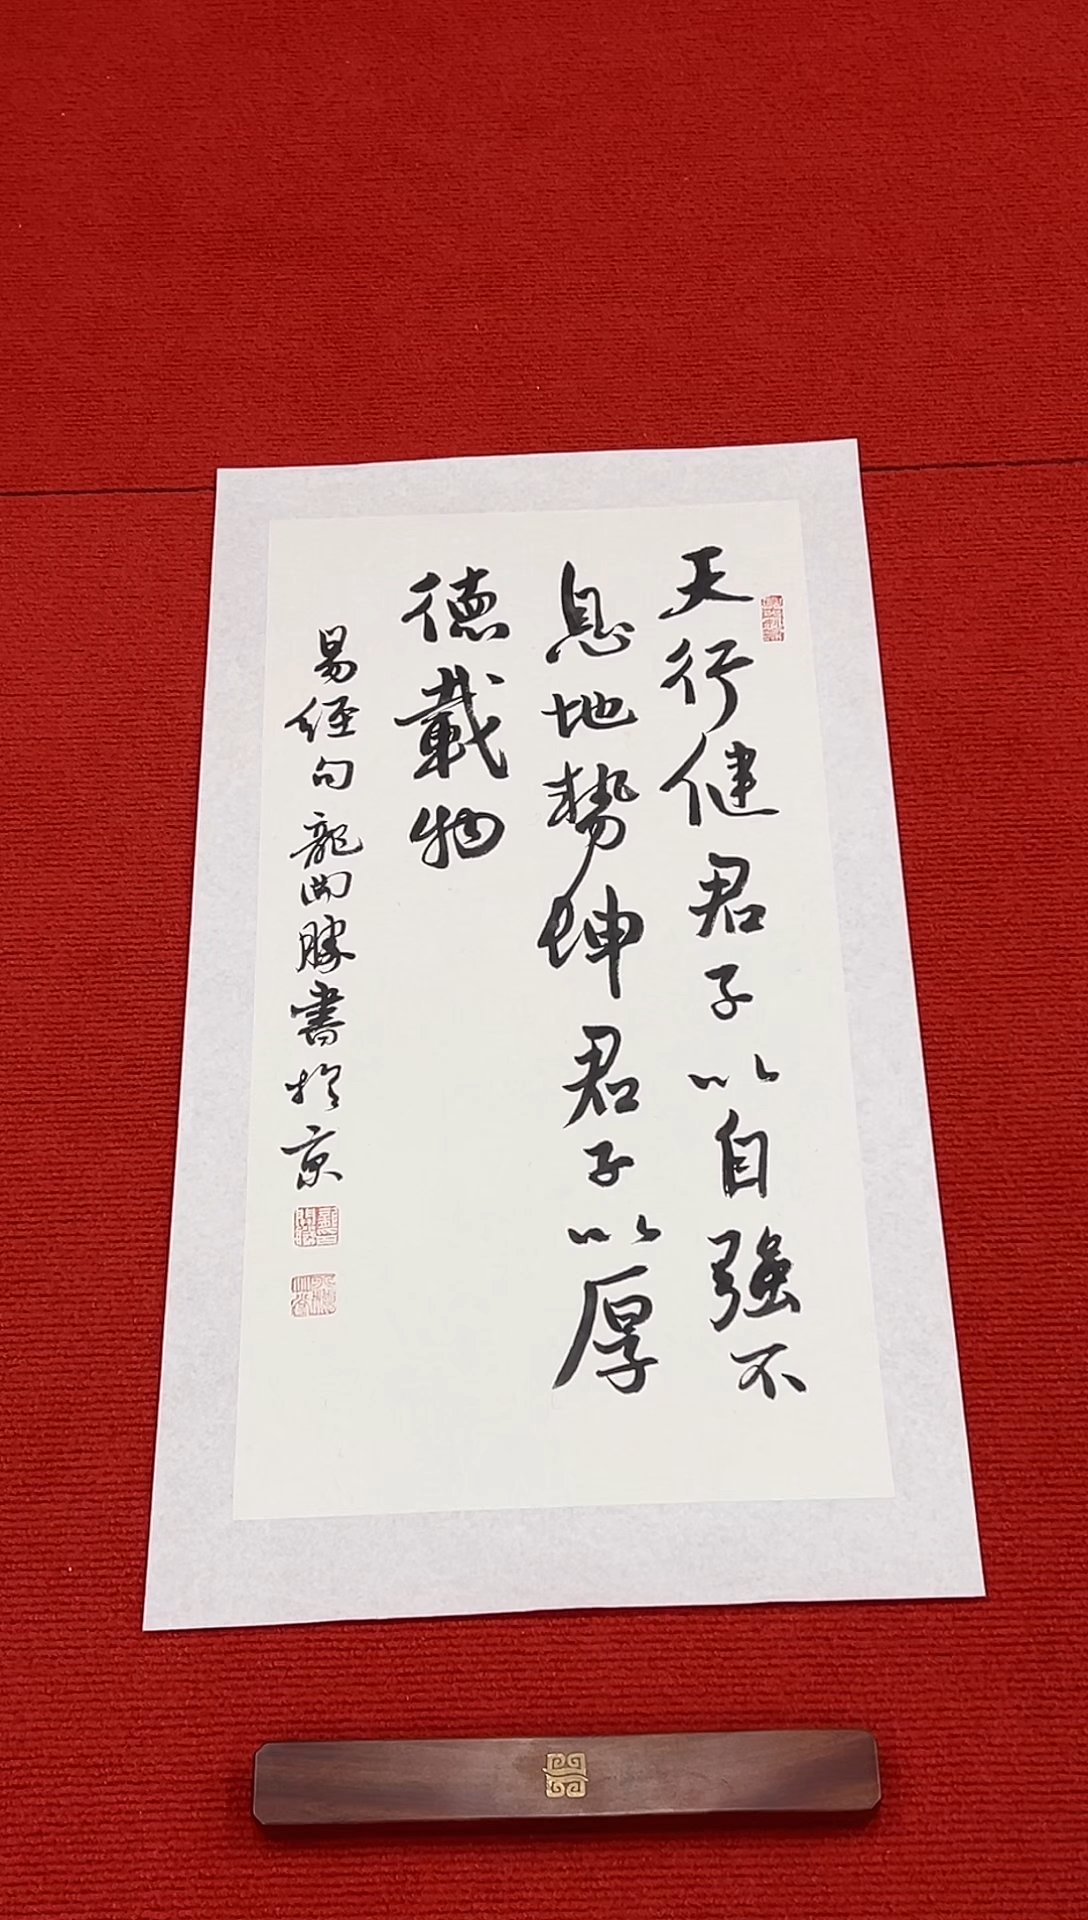 天行健君子以自强不
息地势坤君子以厚
德載物
易经句龍開勝書於京